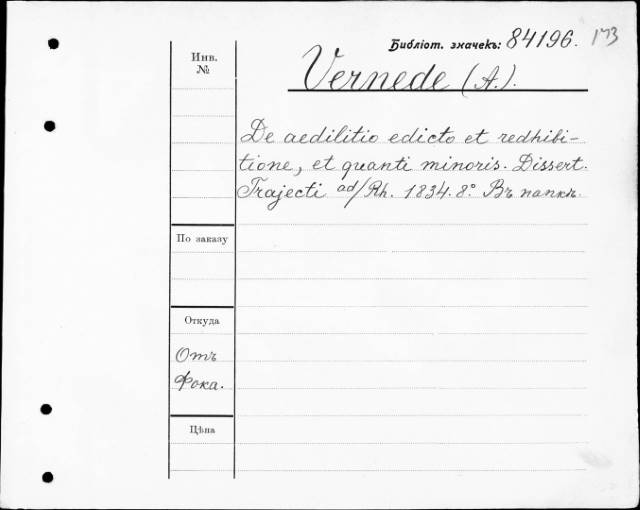 Библіот. значекъ: 84196. 173
Инв. №
Vernede (A.).
De aedilitio edicto et redhibi-
tione, et quanti minoris. Dissert.
Trajecti ad/Rh. 1834. 8º. Въ папкѣ.
По заказу
Откуда
Отъ
Фока.
Цѣна